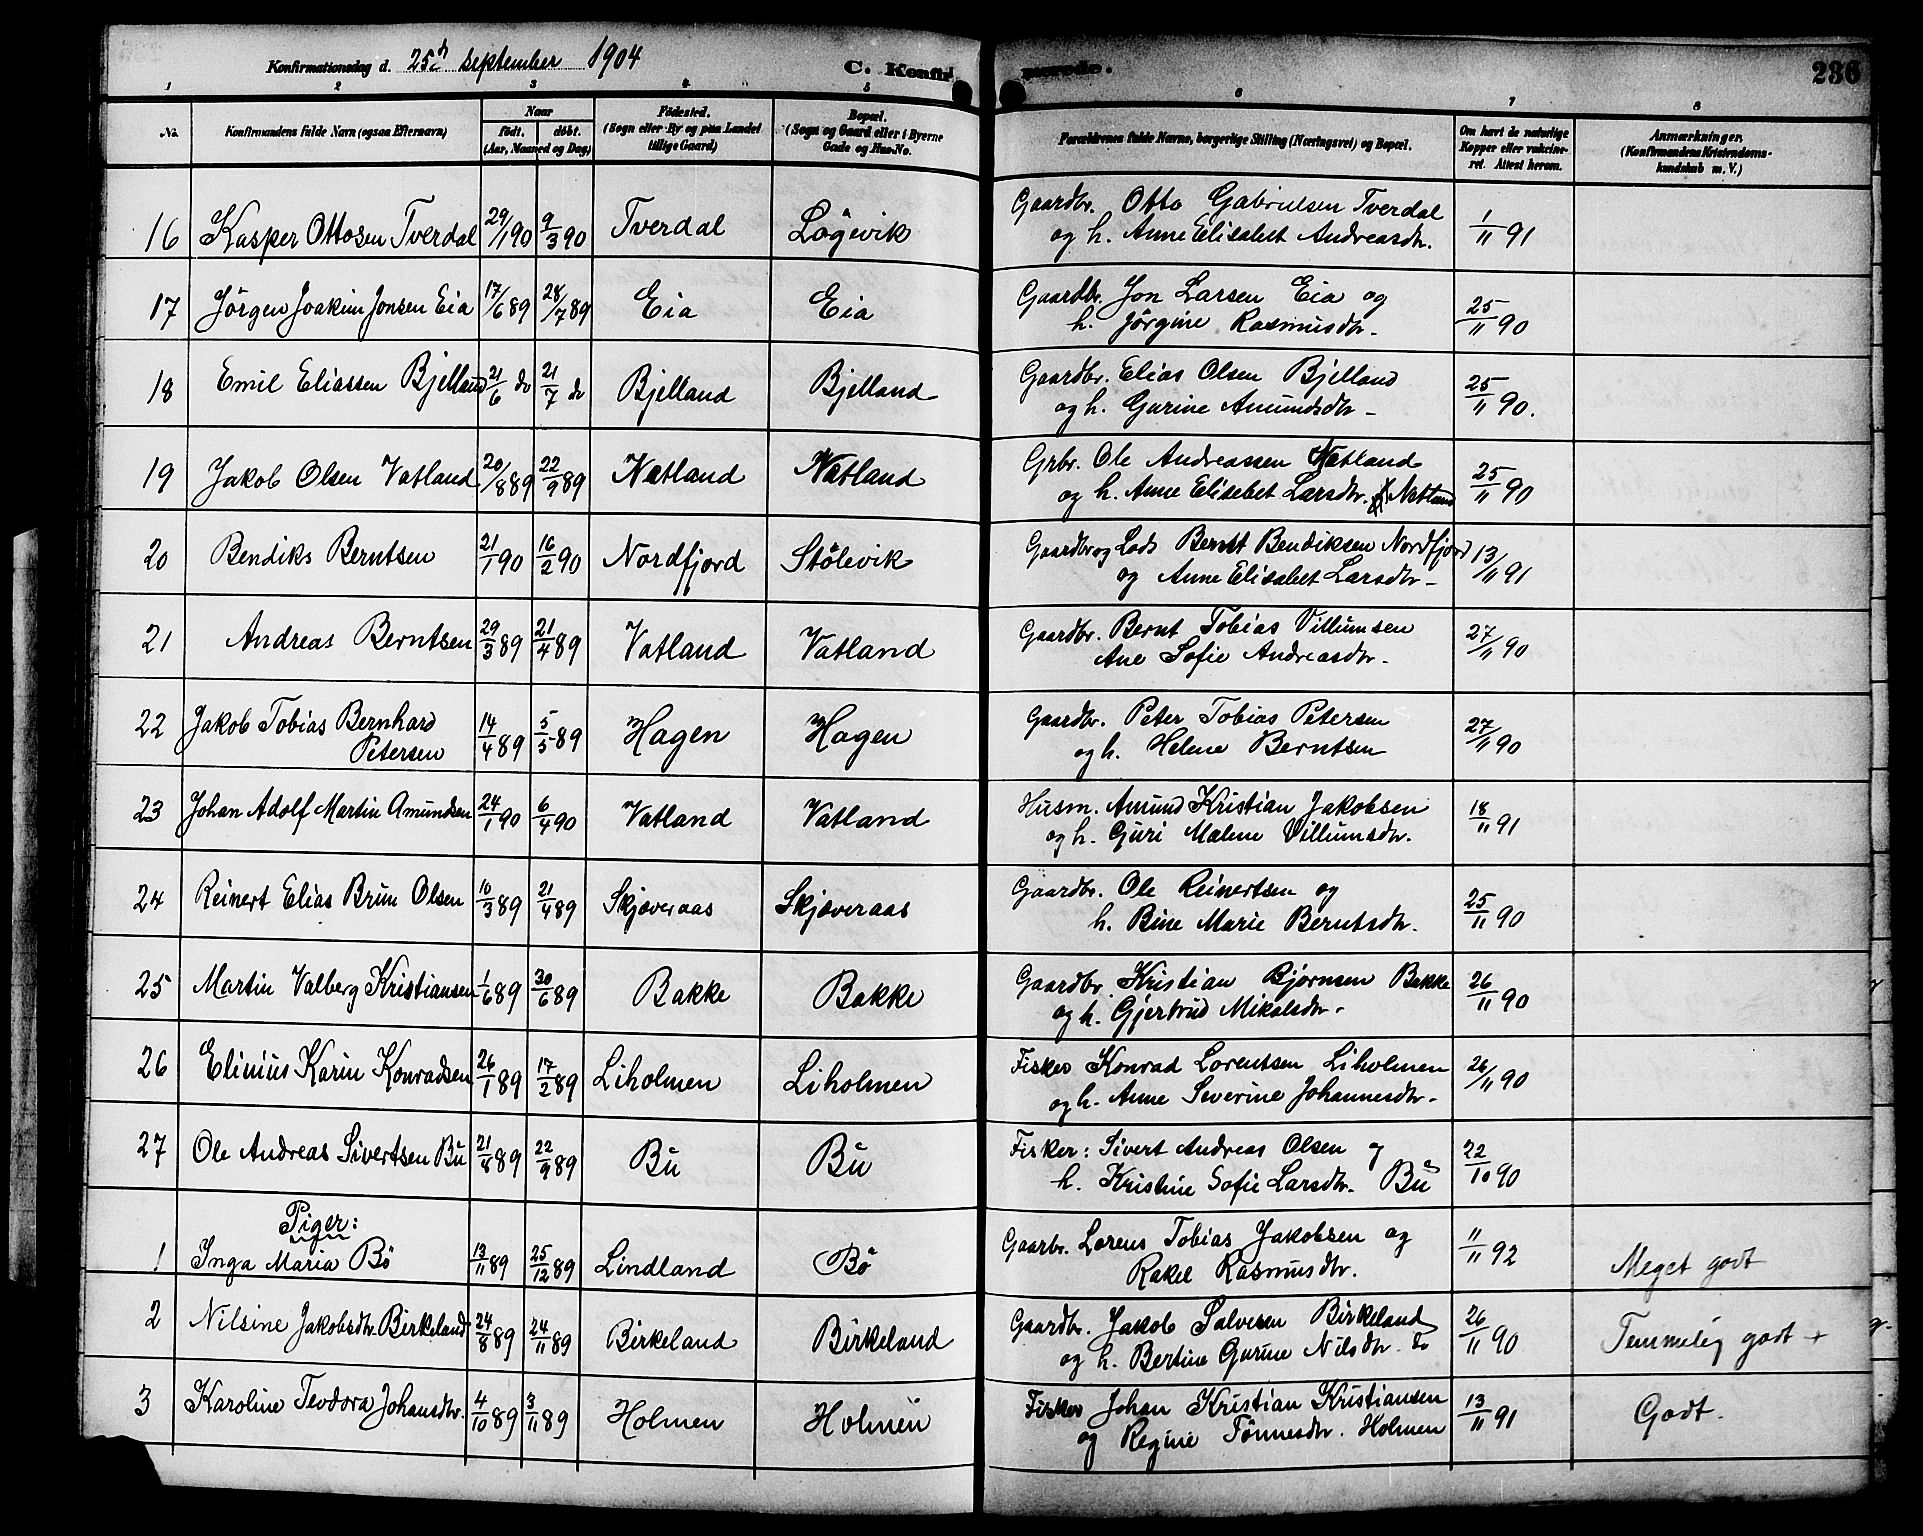 Konfirmationsdag d. 25d september 1904
C. Konfirmerede.
236
1 2 3 4 5 6 7 8
No.
Konfirmandens fulde Navn (ogsaa Efternavn)
Naar
født. døbt.
(Aar, Maaned og Dag)
Fødested.
(Sogn eller By og paa Landet
tillige Gaard)
Bopæl.
(Sogn og Gaard eller i Byerne
Gade og Hus-No.
Forældrenes fulde Navne, borgerlige Stilling (Næringsvei) og Bopæl.
Om havt de naturlige
Kopper eller vakcine-
ret. Attest herom.
Anmærkninger,
(Konfirmandens Kristendoms-
kundskab m. V.)
16 Kasper Ottosen Tverdal 29/1 90 9/3 90 Tverdal Løgevik Gaardbr. Otto Gabrielsen Tverdal
og h. Anne Elisabet Andreasdtr. 1/11 91
17 Jörgen Joakim Jonsen Eia 17/6 89 28/7 89 Eia Eia Gaardbr. Jon Larsen Eia og
h. Jörgine Rasmusdtr. 25/11 90
18 Emil Eliassen Bjelland 21/6 do 21/7 do Bjelland Bjelland Gaardbr. Elias Olsen Bjelland
og h. Gurine Amundsdtr 25/11 90.
19 Jakob Olsen Vatland 20/8 89 22/9 89 Nætland Nætland Grbr. Ole Andreassen Nætland
og h. Anne Elisebet Larsdtr. Nætland 25/11 90
20 Bendiks Berntsen 21/1 90 16/2 90 Nordfjord Stölevik Gaardbr og Lods Bernt Bendiksen Nordfjord
og Anne Elisabet Larsdtr 13/11 91
21 Andreas Berntsen 29/3 89 21/4 89 Vatland Vatland Gaardbr. Bernt Tobias Villumsen
Ane Sofie Andreasdtr. 27/11 90
22 Jakob Tobias Bernhard
Petersen 14/4 89 5/5 89 Hagen Hagen Gaardbr. Peter Tobias Petersen
og h. Helene Berntsen 27/11 90
23 Johan Adolf Martin Amundsen 24/1 90 6/4 90 Vatland Vatland Husm. Amund Kristian Jakobsen
og h. Guri Malene Villumsdtr. 18/11 91
24 Reinert Elias Brun Olsen 10/3 89 21/4 89 Skjæveraas Skjæveraas Gaardbr. Ole Reinertsen og
h. Bine Marie Berntsdtr. 25/11 90
25 Martin Valberg Kristiansen 1/6 89 30/6 89 Bakke Bakke Gaardbr. Kristian Bjørnsen Bakke
og h. Gjertrud Mikalsdtr. 26/11 90
26 Elinius Karin Konradsen 26/1 89 17/2 89 Liholmen Liholmen Fisker Konrad Lorentsen Liholmen
og h. Anne Severine Johannesdtr. 26/11 90
27 Ole Andreas Sivertsen Bu 21/8 89 22/9 89 Bu Bu Fisker: Sivert Andreas Olsen og
h. Kristine Sofie Larsdtr. Bu 22/10 90
Piger:
1 Inga Maria Bö 13/11 89 25/12 89 Lindland Bö Gaarbr. Lorens Tobias Jakobsen og
Rakel Rasmusdtr. 11/11 92 Meget godt
2 Nilsine Jakobsdtr. Birkeland 24/8 89 24/11 89 Birkeland Birkeland Gaardbr. Jakob Salvesen Birkeland
og h. Bertine Gurine Nilsdtr. do 26/11 90 Temmelig godt +
3 Karoline Teodora Johansdtr. 4/10 89 3/11 89 Holmen Holmen Fisker Johan Kristian Kristiansen
og Regine Tönnesdtr. Holmen 13/11 91 Godt.